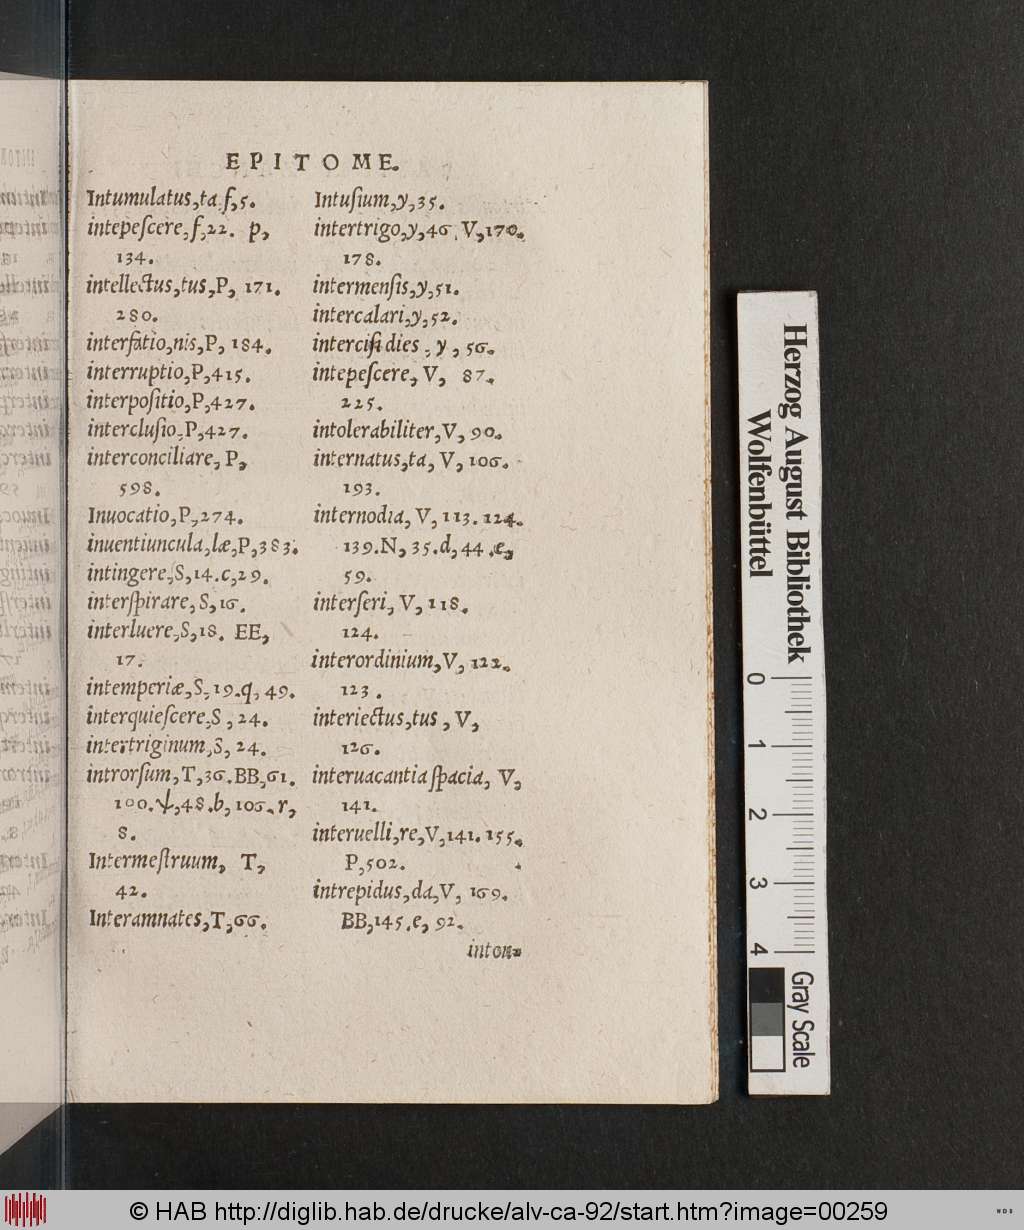 EPITOME.
Intumulatus,ta.ſ,5.
intepeſcere,ſ,22. p,
134.
intellectus,tus,P, 171.
280.
interfatio,nis,P, 184.
interruptio,P,415.
interpoſitio,P,427.
intercluſio,P,427.
interconciliare, P,
598.
Inuocatio,P,274.
inuentiuncula,læ,P,383.
intingere,S,14.c,29.
interſpirare, S,16.
interluere,S,18. EE,
17.
intemperiæ,S,19.q, 49.
interquieſcere,S , 24.
intertriginum,S, 24.
introrſum,T,36.BB,61.
100.ψ,48.b,106.r,
8.
Intermeſtruum, T,
42.
Interamnates,T,66.
Intuſium,y,35.
intertrigo,y,46, V,170.
178.
intermenſis,y,51.
intercalari,y,52.
interciſi dies , y , 56.
intepeſcere, V, 87.
225.
intolerabiliter,V, 90.
internatus,ta, V, 106.
193.
internodia, V, 113. 124.
139.N, 35.d, 44.e,
59.
interſeri, V, 118.
124.
interordinium,V, 122.
123.
interiectus,tus , V,
126.
interuacantia ſpacia, V,
141.
interuelli,re,V,141. 155.
P,502.
intrepidus,da,V, 169.
BB,145.e, 92.
inton-
Herzog August Bibliothek
Wolfenbüttel
0
1
2
3
4
Gray Scale
© HAB http://diglib.hab.de/drucke/alv-ca-92/start.htm?image=00259